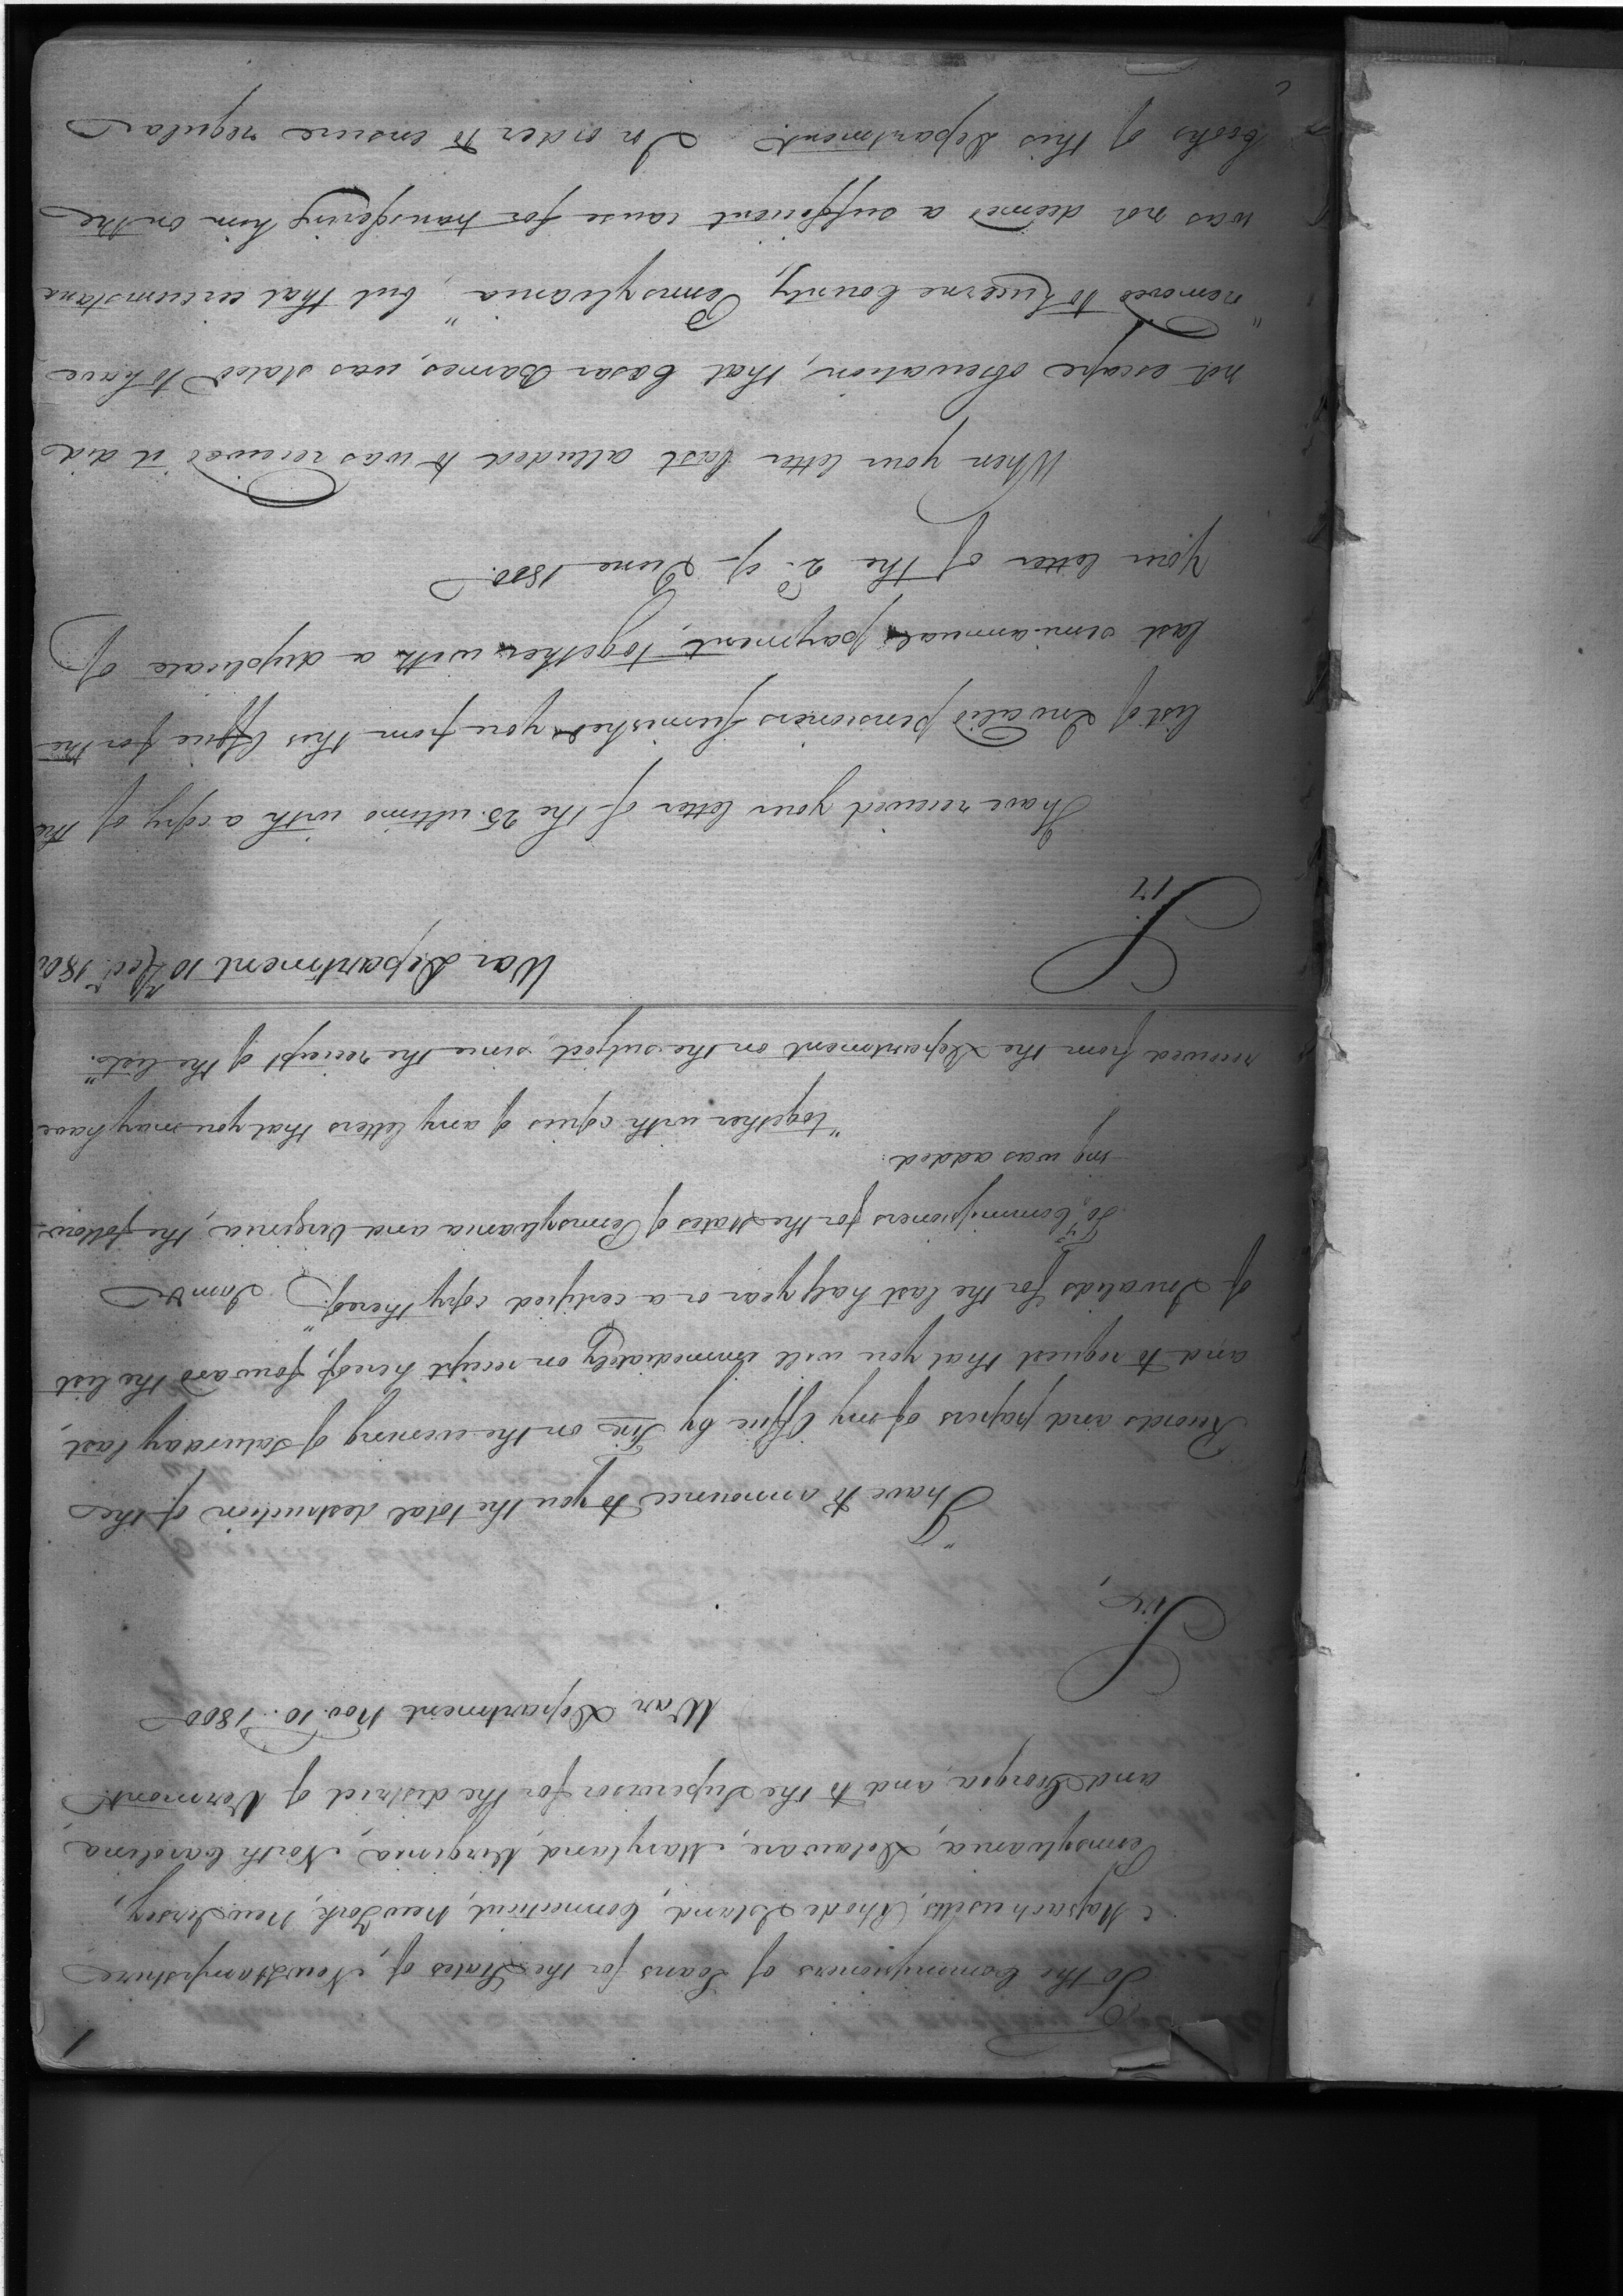 1
To the Commissioners of Loans for the States of New Hampshire
Massachusetts, Rhode Island, Connecticut, New York, New Jersey,
Pennsylvania, Delaware, Maryland, Virginia, North Carolina
and Georgia, and to the Supervisor for the district of Vermont.
War Department Nov. 10. 1800
Sir,
"I have to announce to you the total destruction of the
Records and papers of my Office by Fire on the evening of Saturday last,
and to request that you will immediately on receipt hereof, forward the list
of Invalids for the last half year or a certified copy thereof." I am &
To Commissioners for the States of Pennsylvania and Virginia, the follow-
ing was added:
"together with copies of any letters that you may have
received from the Department on the subject, since the receipt of the list."
War Department 10th Decr. 180
Sir
I have received your letter of the 25. ultimo with a copy of the
list of Invalid pensioners furnished you from this Office for the
last semi-annual payment, together with a duplicate of
your letter of the 2d of June 1800.
When your letter last alluded to was received it did
not escape observation, that Cesar Barnes, was stated to have
"removed to Luzerne County, Pennsylvania", but that circumstance
was not deemed a sufficient cause for transfering him on the
books of this Department. In order to ensure regular